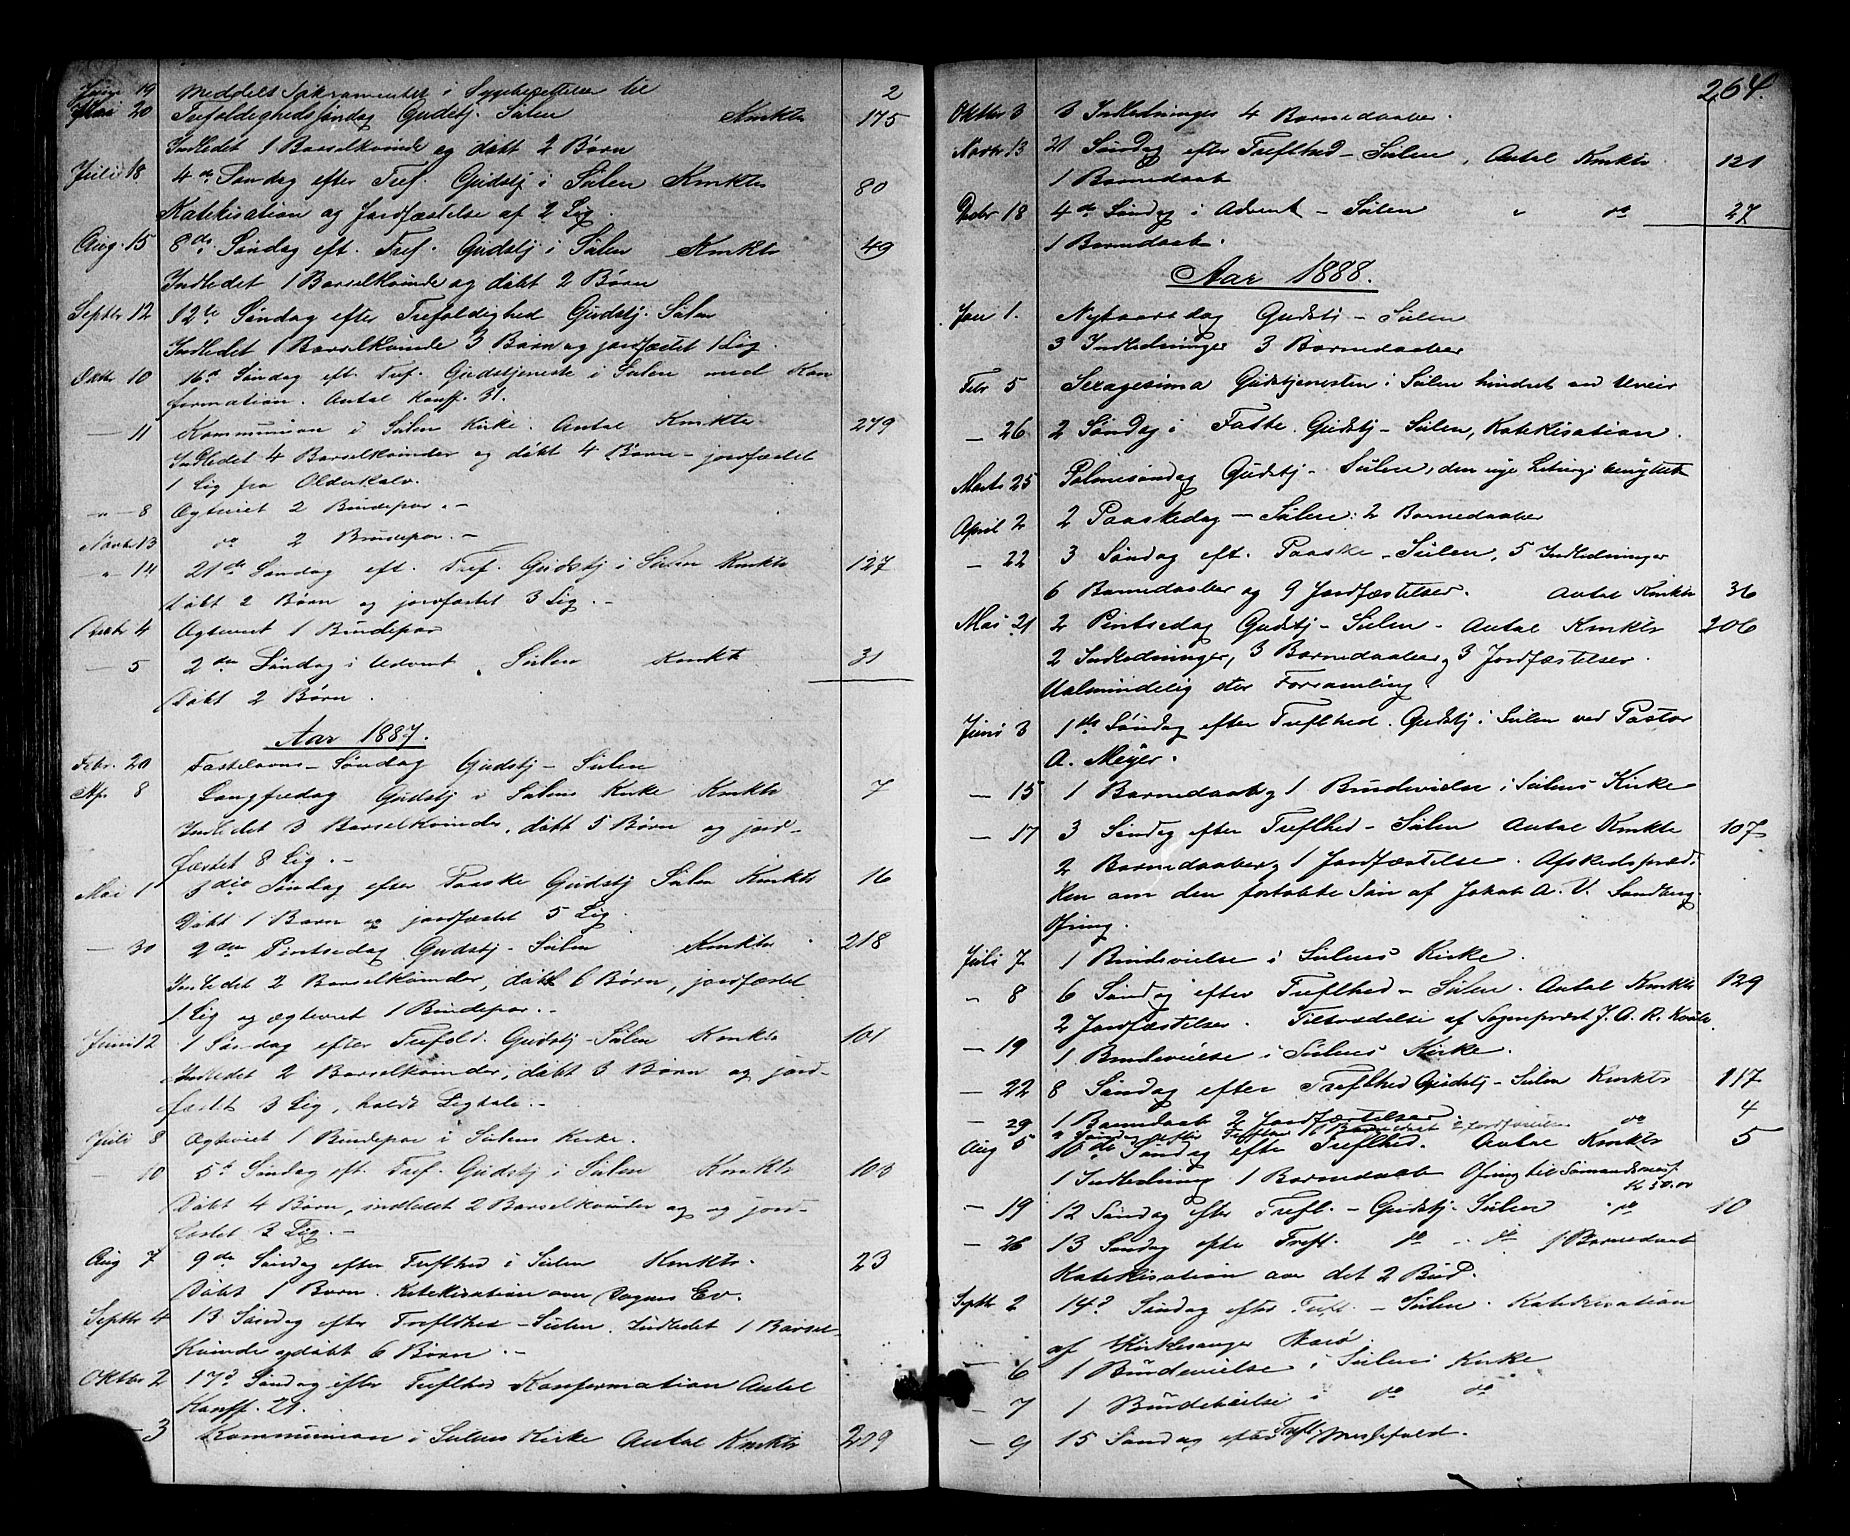 Juni 19 Meddelt Sakramentet i Sygeberettelse til 2
Mai 20 Trefoldighedssøndag Gudstj. Sulen Kmkter 175
Indledet 1 Barselkvinde og døbt 2 Børn
Juli 18 4de Søndag efter Tref. Gudstj i Sulen Kmkter 80
Katekisation og Jordfæstelse af 2 Lig.
Aug. 15 8de Søndag eft. Tref. Gudstj i Sulen Kmkter 49
Indledet 1 Barselkvinde og døbt 2 Børn
Septbr 12 12te Søndag efter Trefoldighed Gudstj. Sulen
Indledet 1 Barselkvinde 3 Børn og jordfæstet 1 Lig.
Oktbr 10 16d Søndag eft. Tref. Gudstjeneste i Sulen med Kon
formation. Antal Konff. 31.
— 11 Kommunion i Sulen Kirke. Antal Kmkter 279
Indledet 4 Barselkvinder og døbt 4 Børn – jordfæstet
1 Lig fra Olderkalv.
-"- 8 Ægteviet 2 Brudepar. –
Novbr 13 do 2 Brudepar. –
-"- 14 21de Søndag eft. Tref. Gudstj i Sulen Kmkter 127
Døbt 2 Børn og jordfæstet 3 Lig. –
Decbr 4 Ægteviet 1 Brudepar
— 5 2den Søndag i Advent. Sulen Kmkt 31
Døbt 2 Børn.
Aar 1887.
Febr. 20 Fastelavns-Søndag Gudstj – Sulen
Ap. 8 Langfredag Gudstj i Sulens Kirke Kmkter 7
Indledet 3 Barselkvinder, døbt 5 Børn og jord-
fæstet 8 Lig. –
Mai 1 3die Søndag efter Paaske Gudstj Sulen Kmkter 16
Døbt 1 Barn og jordfæstet 5 Lig.
— 30 2den Pintsedag Gudstj – Sulen Kmkter 218
Indledet 2 Barselkvinder, døbt 6 Børn, jordfæstet
1 Lig og ægteviet 1 Brudepar. –
Juni 12 1 Søndag efter Trefold. Gudstj – Sulen Kmkter 101
Indledet 2 Barselkvinder, døbt 3 Børn og jord-
fæstet 3 Lig, holdt Ligtale. –
Juli 8 Ægteviet 1 Brudepar i Sulens Kirke.
— 10 5t Søndag eft. Tref. Gudstj i Sulen Kmkter 103
Døbt 4 Børn, indledet 2 Barselkvinder og og jord-
fæstet 3 Lig. –
Aug 7 9de Søndag efter Treflhed i Sulen Kmkter. 23
Døbt 1 Barn. Katekisation over Dagens Ev.
Septbr 4 13 Søndag efter Treflhed – Sulen. Indledet 1 Barsel-
kvinde og døbt 6 Børn. –
Oktbr 2 17d Søndag efter Treflhed Konfirmation Antal
Konff. 21.
– 3 Kommunion i Sulens Kirke Antal Kmkter 219
264.
Oktbr 3 3 Indledninger 4 Barnedaaber.
Novbr 13 21 Søndag efter Treflhed – Sulen, Antal Kmkter 121
1 Barnedaab
Decbr 18 4de Søndag i Advent – Sulen " do 27
1 Barnedaab.
Aar 1888.
Jan 1. Nytaarsdag Gudstj – Sulen
3 Indledninger 3 Barnedaaber
Febr 5 Sexagesima Gudstjenesten i Sulen hindret ved Uveir
— 26 2 Søndag i Faste. Gudstj – Sulen, Katekisation.
Marts 25 Palmesøndag Gudstj – Sulen, den nye Liturgi benyttet
April 2 2 Paaskedag – Sulen: 2 Barnedaaber
— 22 3 Søndag eft. Paaske – Sulen, 5 Indledninger
6 Barnedaaber og 9 Jordfæstelser. Antal Kmkter 36
Mai 21 2 Pintsedag Gudstj – Sulen – Antal Kmkter 206
2 Indledninger, 3 Barnedaaber og 3 Jordfæstelser.
Ualmindelig stor Forsamling
Juni 3 1ste Søndag efter Treflhed. Gudstj i Sulen ved Pastor
A. Meyer.
— 15 1 Barnedaab og 1 Brudevielse i Sulens Kirke
— 17 3 Søndag efter Treflhed – Sulen Antal Kmkte 107
2 Barnedaaber og 1 Jordfæstelse. Afskedspræd.
ken om den fortabte Søn af Jakob A. V. Sandberg
Ofring.
Juli 7 1 Brudevielse i Sulens Kirke.
" 8 6 Søndag efter Treflhed – Sulen. Antal Kmkter 129
2 Jordfæstelser. Tiltrædelse af Sognepræst J. A. R. Kvale.
— 19 1 Brudevielse i Sulens Kirke.
— 22 8 Søndag efter Treflhed Gudstj – Sulen Kmkter 117
1 Barnedaab 2 Jordfæstelser.
— 29 9 Søndag efter Treflhed 2 Jordfæstelser do 4
Aug 5 10de Søndag efter Treflhed. Antal Kmkter 5
1 Indledning 1 Barnedaab Ofring til Sømandsmis.
Kr 30.00
— 19 12 Søndag efter Trefl. – Gudstj. Sulen " do 10
— 26 13 Søndag efter Trefl. do – " do 1 Barnedaab
Katekisation over det 2 Bud.
Septbr 2 14d Søndag efter Trefl. – Sulen. Katekisation
af Kirkesanger Harø.
— 6 1 Brudevielse i Sulens Kirke
— 7 1 Brudevielse i do do
— 9 15 Søndag efter Trefl. Messefald.